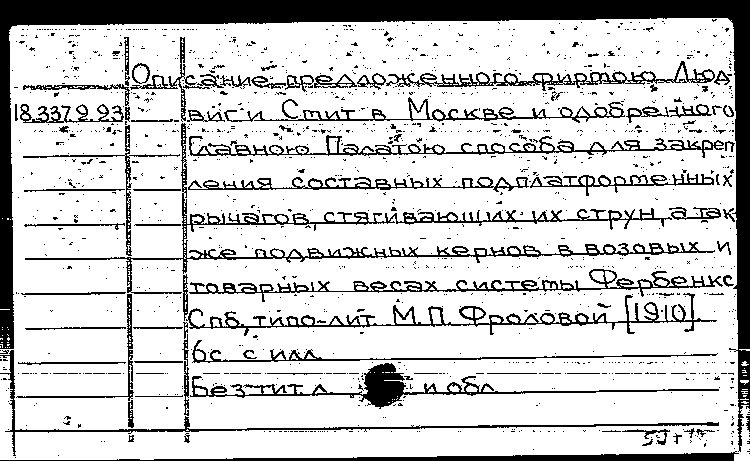 Описание предложенного фирмою Люд
18.337.9.93 виг и Смит в Москве и одобренного
Главною Палатою способа для закреп
ления составных подплатформенных
рычагов, стягивающих их струн, а так
же подвижных кернов в возовых и
товарных весах системы Фербенкс
Спб, типо-лит. М.П. Фроловой, [1910].
6с. с илл.
Без тит. л. и обл.